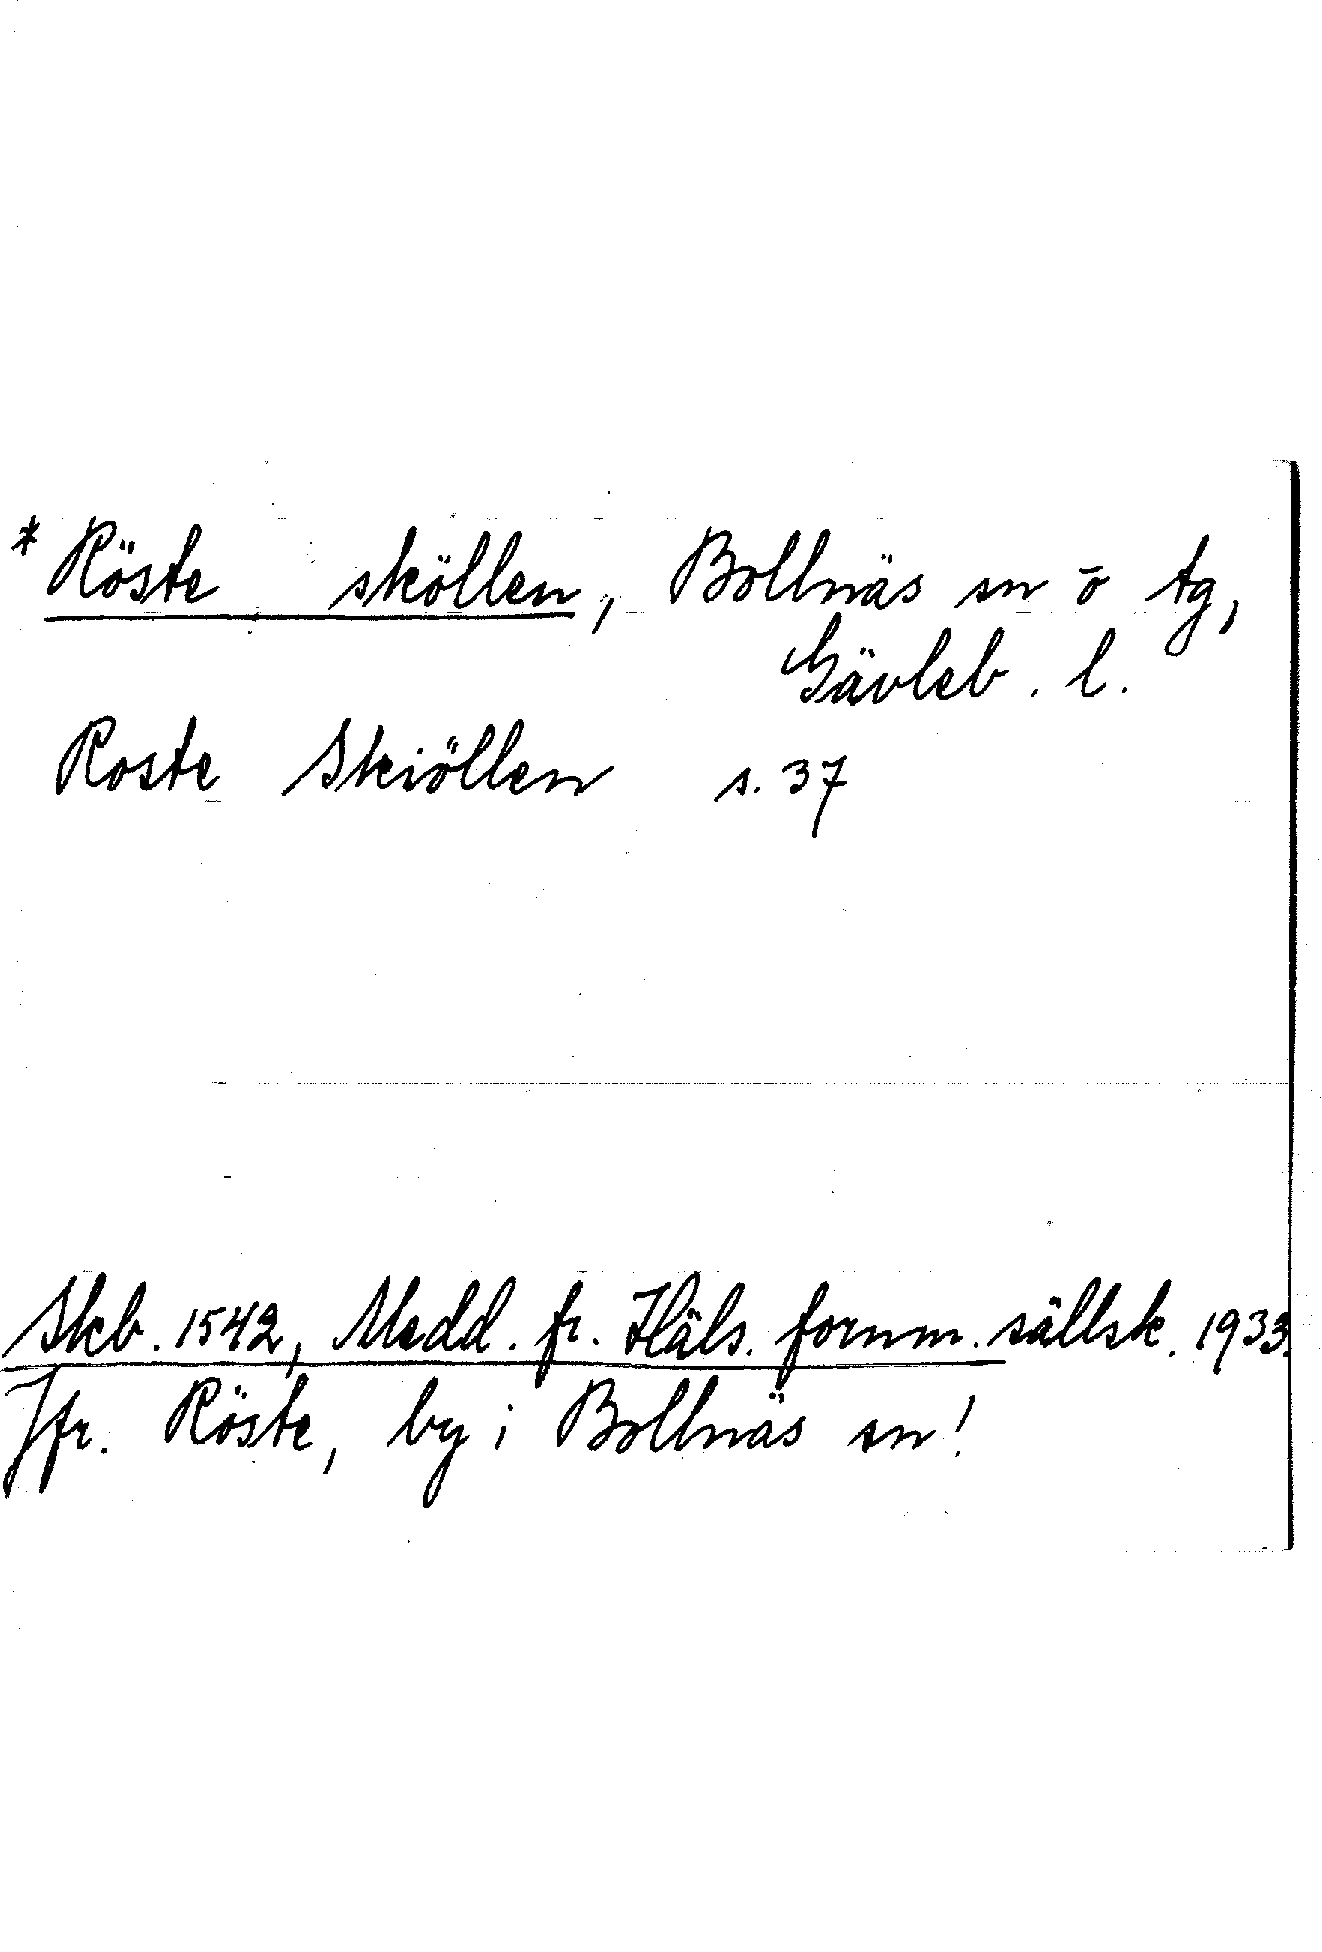 * Röste sköllen, Bollnäs sn o tg,
Gävleb. l.
Roste Skiöllen s. 37
Skb. 1542, Medd. fr. Häls. fornm. sällsk. 1933.
Jfr. Röste, by i Bollnäs sn!